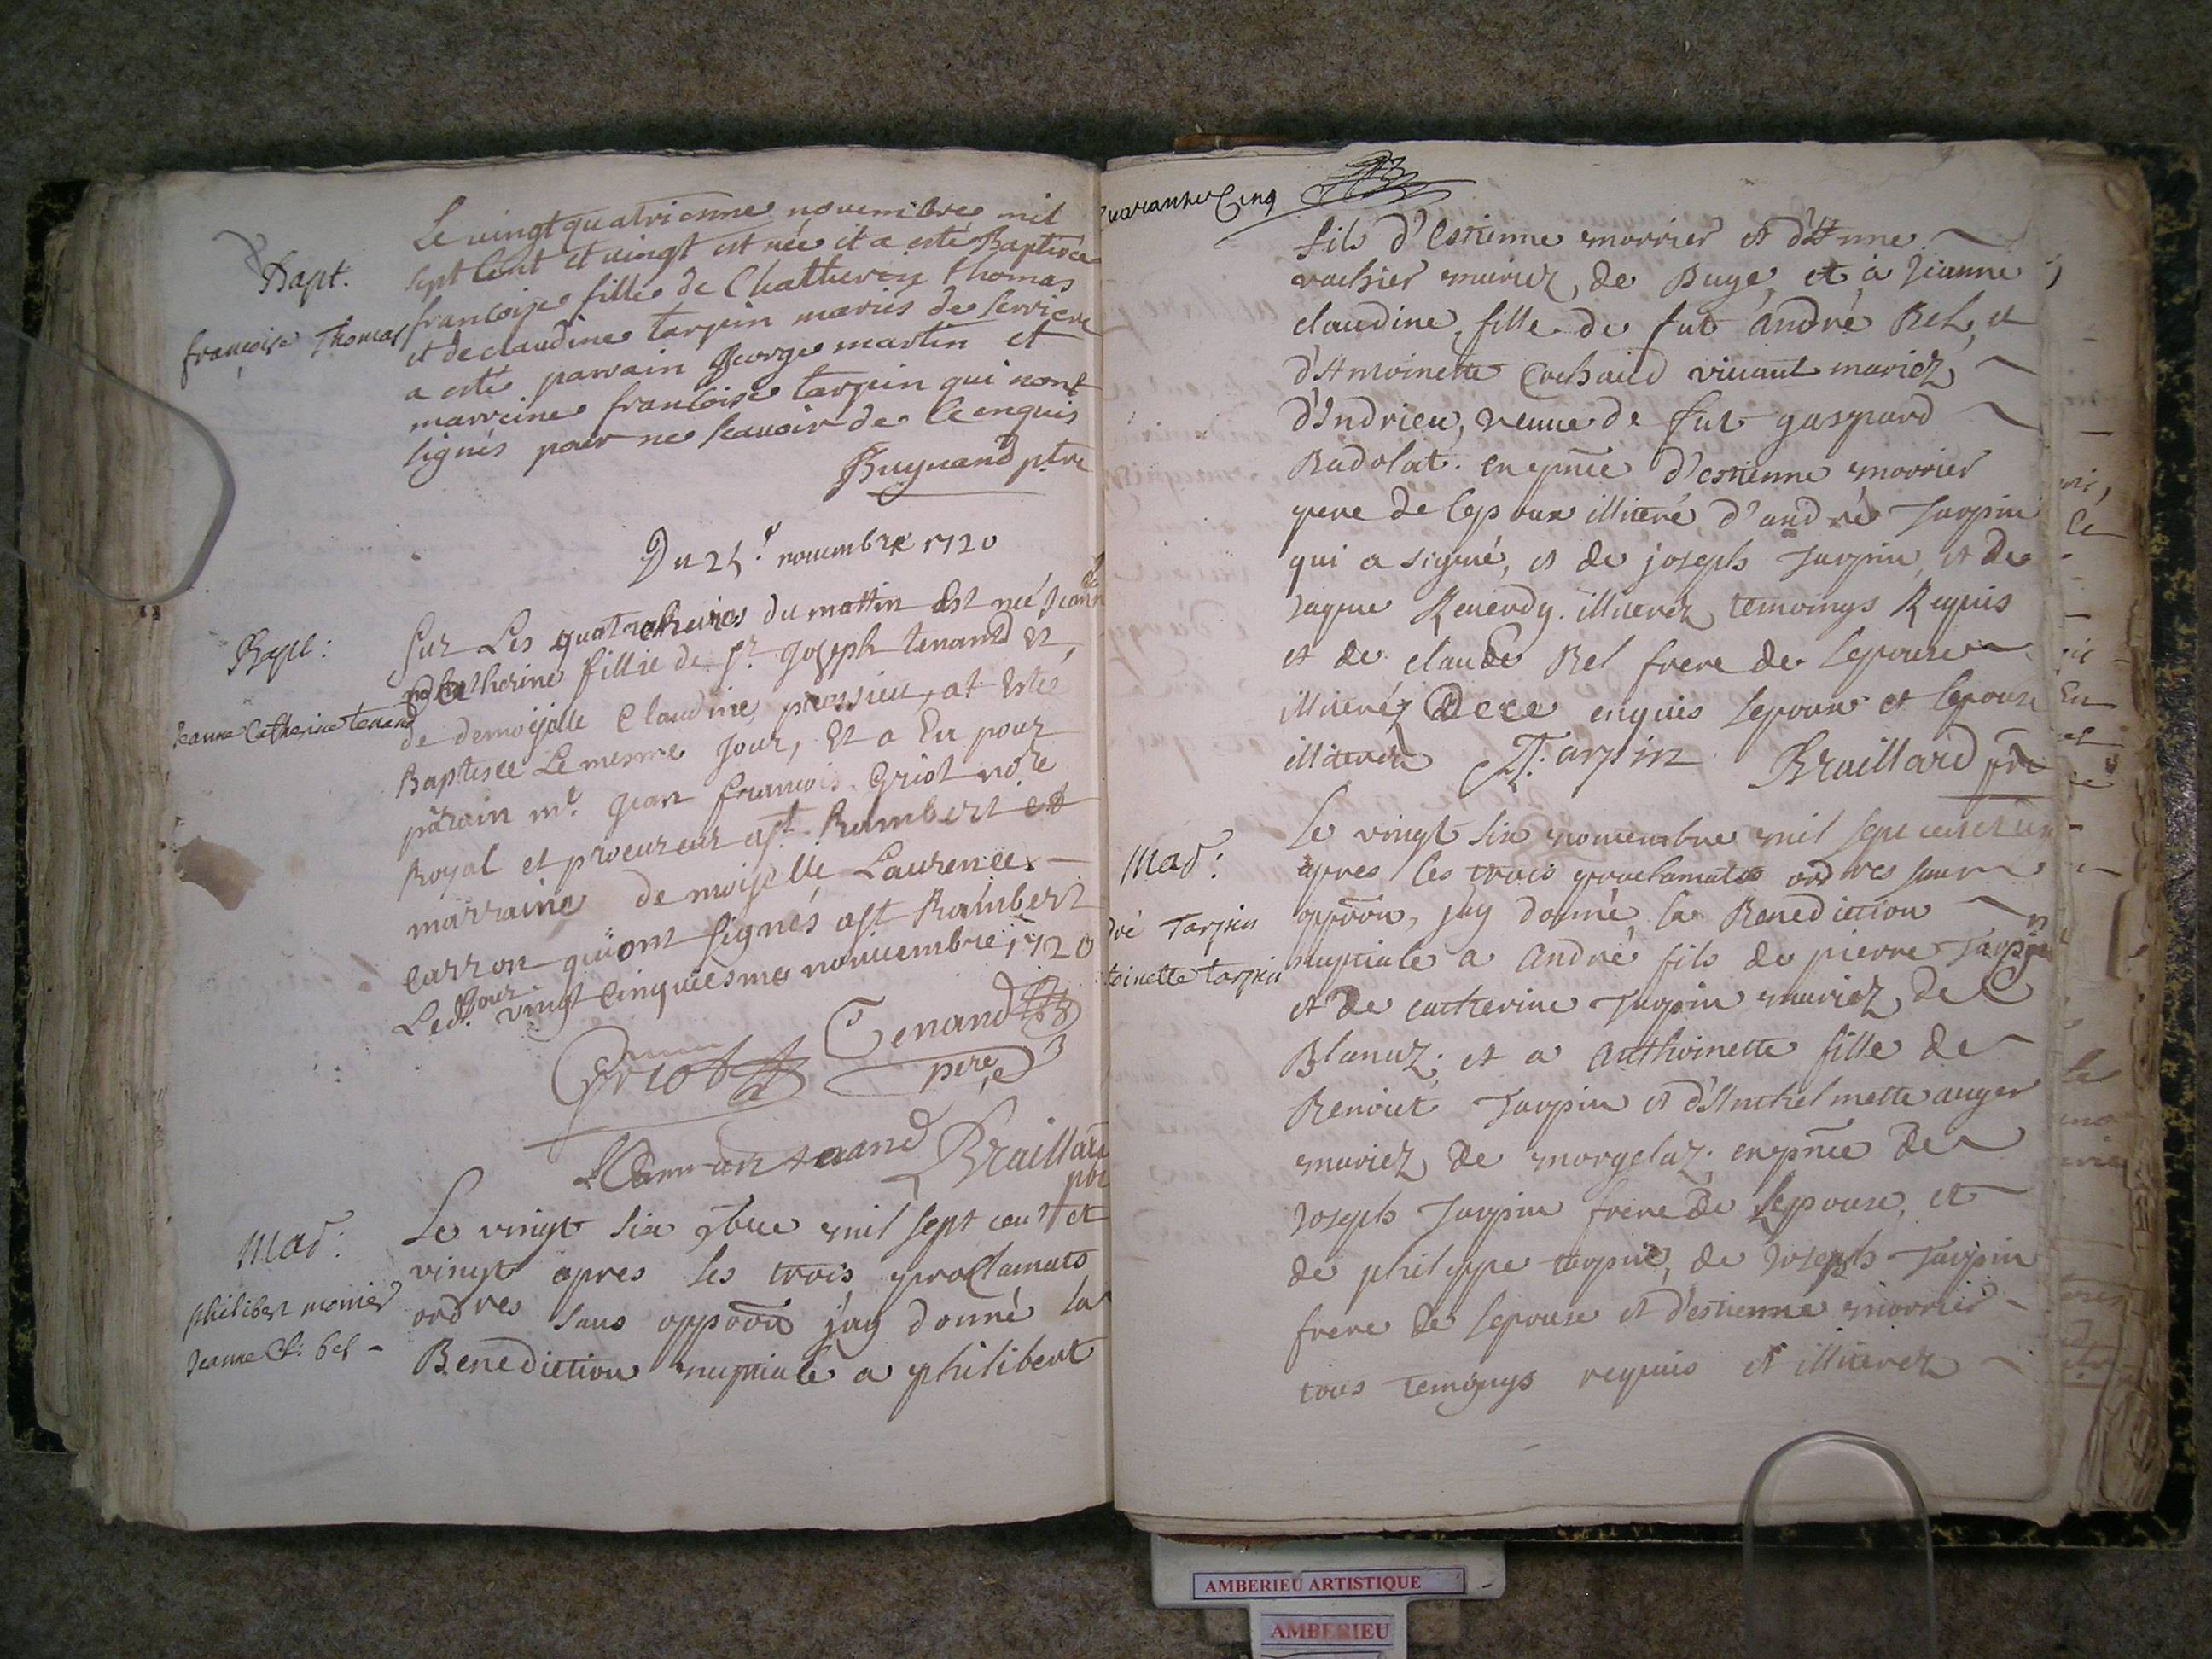 Bapt.
françoise Thomas
Le vingt quatrienne novembre mil
sept Cent et vingt est née et a esté Baptisée
francoise fille de Chatherin thomas
et de claudine tarpin mariés de serriere
a esté parrain george martin et
marreine francoise tarpin qui nont
signés pour ne scauoir de ce enquis
Buynand ptre
Du 25.e nouembre 1720
Bapt:
Jeanne Catherine tenand
Sur Les quatre heures du mattin est née Jeann
Catherine fillie de Sr. Joseph tenand et,
de demoiselle Claudine pressieu, at Estée
Baptisée Le mesme Jour, Et a Eu pour
parain mr. Jean francois Griot no.re
Royal et procureur a St. Rambert et
marraine demoiselle Laurence
Carron qui ont signés a St Rambert
Led. Jour vingt Cinquiesme nouuembre 1720
Griot Tenand
pere
Braillard
ptre
Mar:
philibert morrier
Jeanne Cl: bel -
Le vingt six 9bre mil sept cent et
vingt apres les trois proclamats
ordres sans oppoõn j'ay donné la
Benediction nuptiale a philibert
quarante Cinq
fils d'Estienne morrier et d'Anne
vachier mariez, de Buge, et à Jeanne
claudine, fille de fut André Bel, et
d'Antoinette Cochaud vivant mariez,
d'Indrieu, veuue de fut gaspard
Badolat. en pñce d'estienne morrier
pere de lepoux illiteré d'andré Tarpin
qui a signé, et de joseph Tarpin, et de
Jaque Reuerdy. illiterez, temoings Requis
et de claude Bel frere de lepouse
illiteréz De ce enquis lepoux et lepouse
illiterez A. Tarpin Braillard ptre
Mar:
dré Tarpin
toinette tarpin
Le vingt six nouembre mil sept cent et vin
apres les trois proclamats ordres sans
oppoõn, jay donné, la Benediction
nuptiale a André fils de pierre Tarpin
et de catherine Tarpin mariez, de
Blanaz; et a Anthoinette fille de
Benoiet Tarpin et d'Anthelmette auger
mariez, de morgelaz; en pñce de
Joseph Tarpin frere de lepouse, et
de philippe tarpin, de Joseph Tarpin
frere de lepouse et d'estienne morrier
tous temoings requis et illiterez
AMBERIEU ARTISTIQUE
AMBERIEU